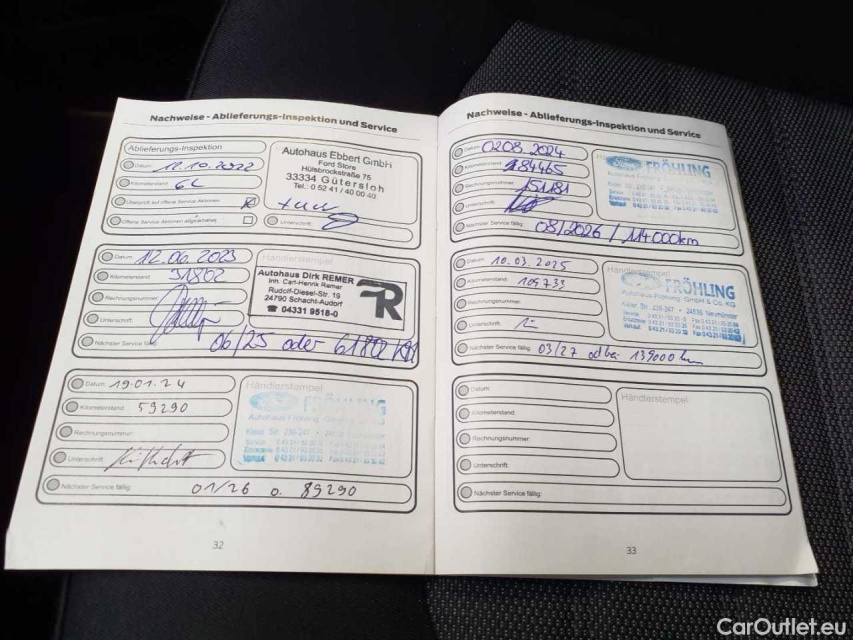 Nachweise - Ablieferungs-Inspektion und Service
Ablieferungs-Inspektion
Datum: 12.10.2022
Kilometerstand: 6
Überprüft auf offene Service Aktionen
Offene Service Aktionen abgearbeitet
Autohaus Ebbert GmbH
Ford Store
Hülsbrockstraße 75
33334 Gütersloh
Tel.: 0 52 41 / 40 00 40
Unterschrift:
Datum: 12.06.2023
Kilometerstand: 31802
Rechnungsnummer:
Unterschrift:
Händlerstempel
Autohaus Dirk REMER
Inh. Carl-Henrik Remer
Rudolf-Diesel-Str. 19
24790 Schacht-Audorf
☎ 04331 9518-0
R
Nächster Service fällig: 06/25 oder 61802 km
Datum: 19.01.24
Kilometerstand: 59290
Rechnungsnummer:
Unterschrift:
Händlerstempel
Ford FRÖHLING
Nächster Service fällig: 01/26 o. 89290
32
Nachweise - Ablieferungs-Inspektion und Service
Datum: 02.08.2024
Kilometerstand: 84465
Rechnungsnummer: 151181
Unterschrift:
Ford FRÖHLING
Nächster Service fällig: 08/2026 / 114000km
Datum: 10.03.2025
Kilometerstand: 109733
Rechnungsnummer:
Unterschrift:
Ford FRÖHLING
Autohaus Fröhling GmbH & Co. KG
Kieler Str. 236-247 • 24536 Neumünster
Nächster Service fällig: 03/27 139000 km
Datum:
Kilometerstand:
Rechnungsnummer:
Unterschrift:
Händlerstempel
Nächster Service fällig:
33
CarOutlet.eu